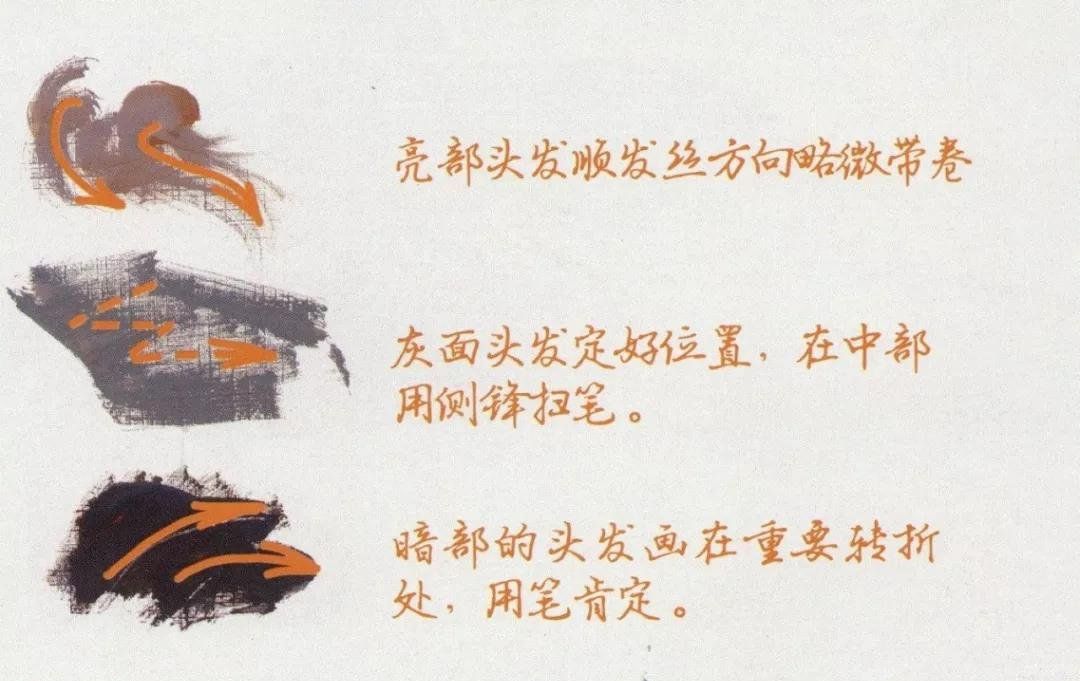 亮部头发顺发丝方向略微带卷
灰面头发定好位置，在中部
用侧锋扭笔。
暗部的头发画在重要转折
处，用笔肯定。